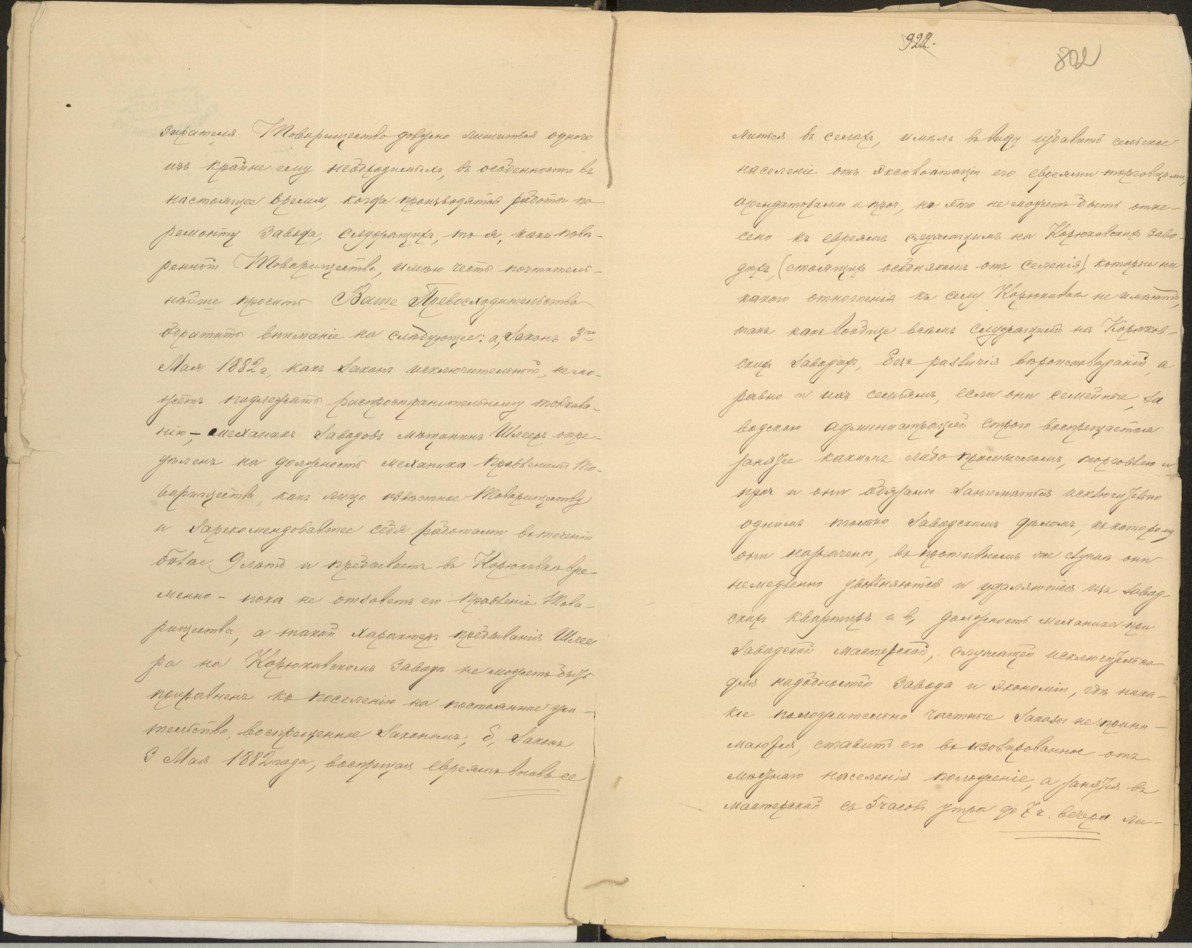 зиратся Товарищество должно лишиться одного
изъ крайне ему необходимыхъ, въ особенности въ
настоящее время, когда производятся работы по
ремонту завода, служащихъ, то я, какъ пове-
ренный Товарищества, имѣю честь почтитель-
нѣйше просить Ваше Превосходительство
обратить вниманіе на слѣдующее: а, законъ 3го
Мая 1882 г, какъ законъ исключительный, не мо-
жетъ подлежать распространительному толкова-
нію, – механикъ заводовъ мѣщанинъ Шлеръ опре-
дѣленъ на должность механика Правленіемъ То-
варищества, какъ лицо извѣстное Товариществу
и зарекомендовавшее себя работами въ теченіи
болѣе 9 лѣтъ и пребываетъ въ Корюковкѣ вре-
менно – пока не отзоветъ его Правленіе Това-
рищества, а такой характеръ пребыванія Шле-
ра на Корюковскомъ заводѣ не можетъ быть
приравненъ къ поселенію на постоянное жи-
тельство, воспрещенное закономъ; б, законъ
3 Мая 1882 года, воспрещая евреямъ вновь се
922.
802
литься въ селахъ, имѣлъ въ виду избавить сельское
населеніе отъ эксплоатаціи его евреями торговцами,
арендаторами и проч, но это не можетъ быть отне-
сено къ евреямъ служащимъ на Корюковскихъ заво-
дахъ, (стоящихъ особнякомъ отъ селенія) которые ни-
какого отношенія къ селу Корюковкѣ не имѣютъ,
такъ какъ вообще всѣмъ служащимъ на Корюков-
скихъ заводахъ, безъ различія вѣроисповѣданій, а
равно и ихъ семьямъ, если они семейные, за
водскою администраціей строго воспрещается
занятіе какимъ либо промысломъ, торговлею и
проч и они обязаны заниматься исключительно
однимъ только заводскимъ дѣломъ, къ которому
они назначены, въ противномъ же случаѣ они
немедленно увольняются и удаляются изъ завод
скихъ квартиръ и в, должность механика при
заводской мастерской, служащей исключительно
для надобностей завода и экономіи, гдѣ ника-
кіе положительно частные заказы не прини-
маются, ставитъ его въ изолированное отъ
мѣстнаго населенія положеніе, а занятія въ
мастерской съ 5 часовъ утра до 7 ч. вечера ли-